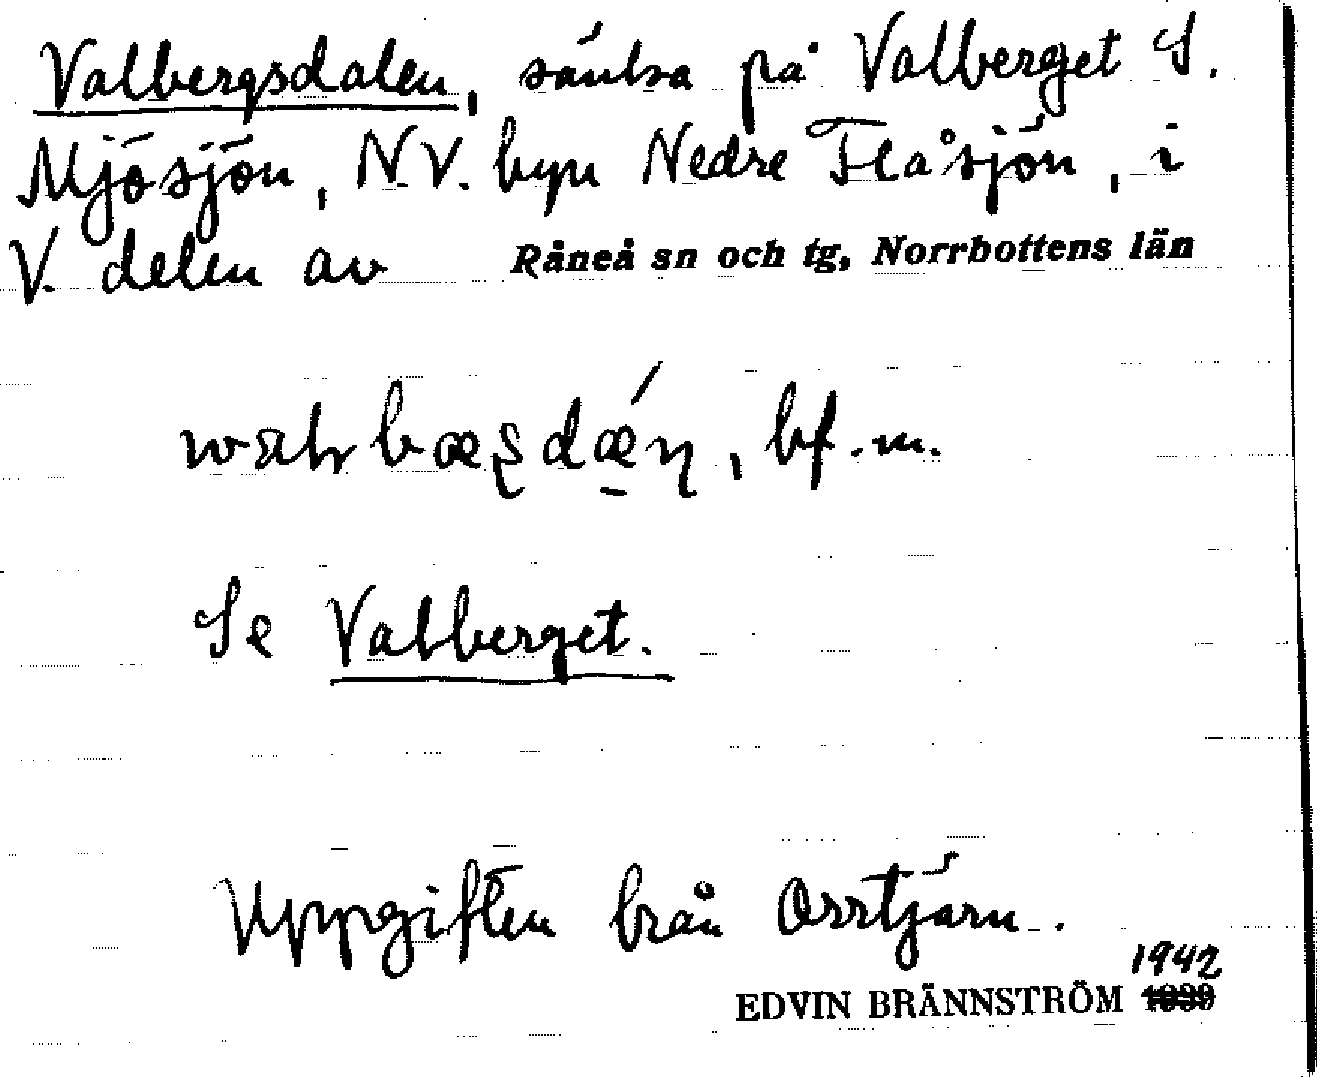 Valbergsdalen, sänka på Valberget S.
Mjösjön, N.V. byn Nedre Flåsjön, i
V. delen av Råneå sn och tg, Norrbottens län
bf. m.
Se Valberget.
Uppgiften från Orrtjärn.
1942
EDVIN BRÄNNSTRÖM 1939